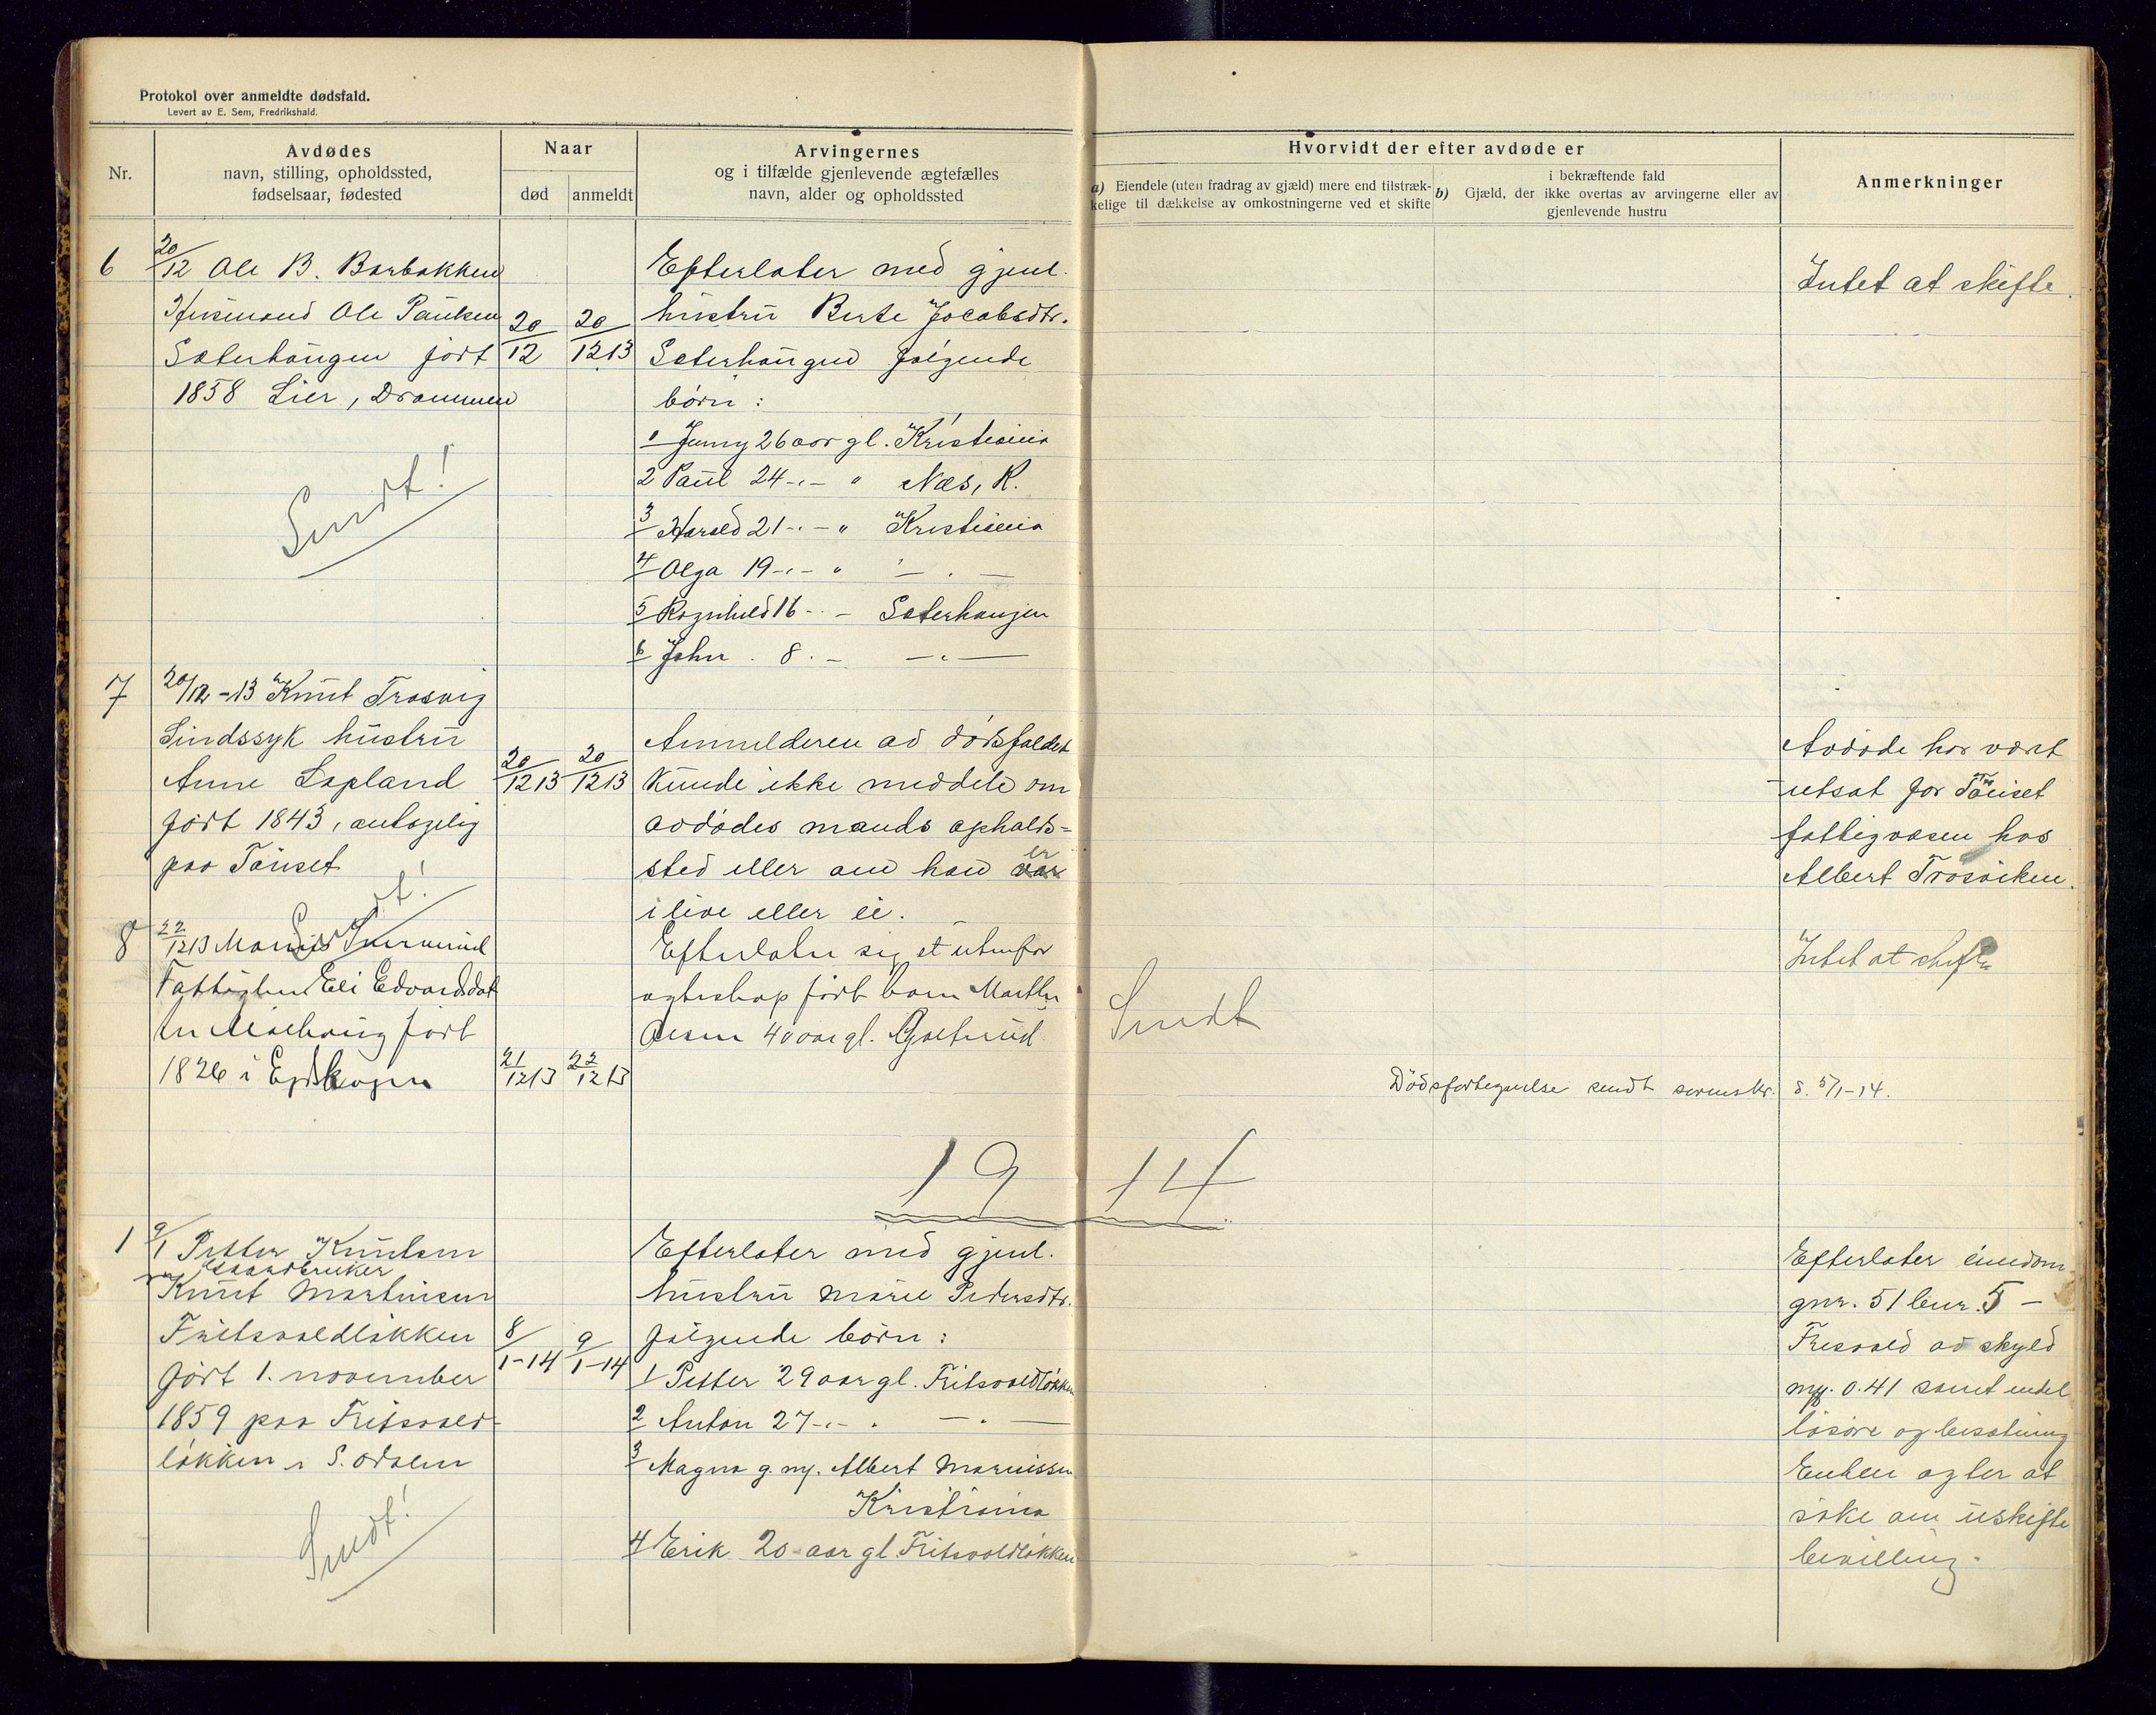 Protokol over anmeldte dødsfald.
Levert av E. Sem, Fredrikshald.
Nr.
Avdødes
navn, stilling, opholdssted,
fødselsaar, fødested
Naar
død
anmeldt
Arvingernes
og i tilfælde gjenlevende ægtefælles
navn, alder og opholdssted
Hvorvidt der efter avdøde er
a) Eiendele (uten fradrag av gjæld) mere end tilstræk-
kelige til dækkelse av omkostningerne ved et skifte
i bekræftende fald
b) Gjæld, der ikke overtas av arvingerne eller av
gjenlevende hustru
Anmerkninger
6
20/12 Ole B. Barbakken
Husmand Ole Paulsen
Sæterhaugen født
1858 Lier, Drammen
20/12
20/12 13
Sendt!
Efterlater med gjenl.
hustru Berte Jacobsdtr.
Sæterhaugen følgende
børn:
1 Jenny 26 aar gl. Kristiania
2 Paul 24 -"- " Næs, R.
3 Harald 21 -"- " Kristiania
4 Olga 19 -"- " -"-
5 Ragnhild 16 -"- Sæterhaugen
6 John 8 - -"-
Intet at skifte.
7
20/12-13 Knut Trosvig
Sindssyk hustru
Anne Lapland
født 1843, antagelig
paa Tønset
20/12 13
20/12 13
Sendt!
Anmelderen av dødsfaldet
kunde ikke meddele om
avdødes mands opholds=
sted eller om han var er
ilive eller ei.
Avdøde har været
utsat for Tønset
fattigvæsen hos
Albert Trosviken.
8
22/12 13
Eli Edvardsdat
født
1826 i
21/12 13
22/12 13
Efterlater sig et utenfor
egteskap født barn
40 aar gl.
Sendt
Intet at skifte
Dødsfortegnelse sendt sorenskr. d. 5/1-14.
1914
1
9/1 Petter Knutsen
Gaardbruker
Knut Martinsen
Fritsvoldløkken
født 1. november
1859 paa Fritsvold-
løkken i S. Odalen
8/1-14
9/1-14
Sendt!
Efterlater med gjenl.
hustru Marie Pedersdtr.
følgende børn:
1 Petter 29 aar gl. Fritsvoldløkken
2 Anton 27 -"- " -"-
3 Magna g.m. Albert
Kristiania
4 Erik 20 aar gl. Fritsvoldløkken
Efterlater eiendom
gnr. 51 bnr. 5 -
Fresvold av skyld
mk. 0.41 samt endel
løsøre og besætning
Enken agter at
søke om uskifte
bevilling.